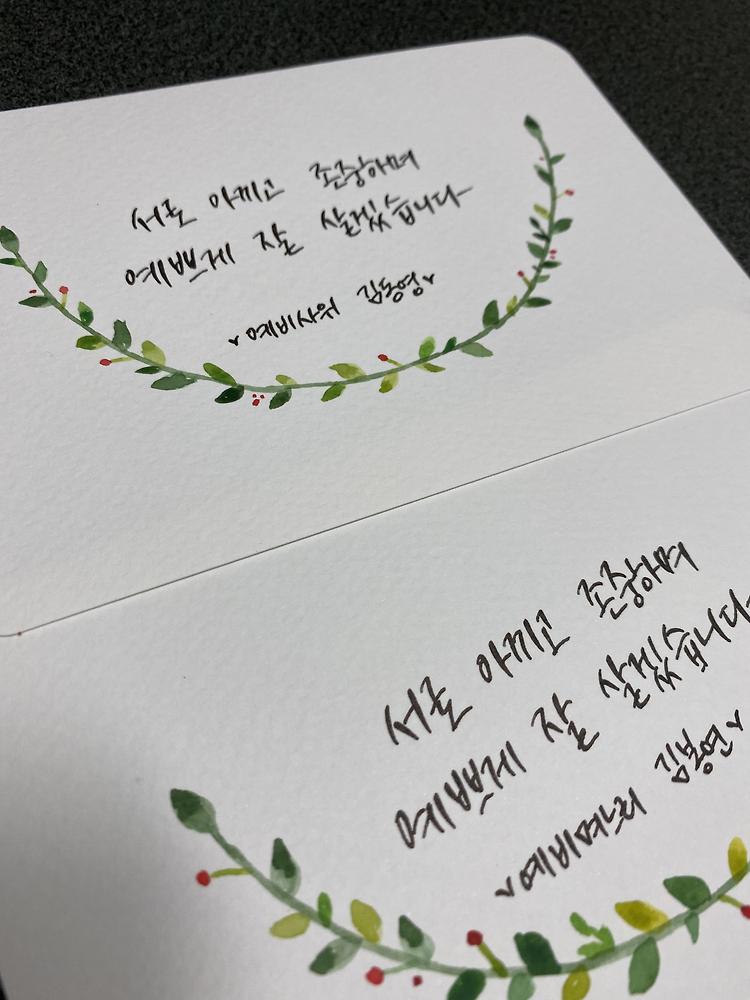 서로 아끼고 존중하며
예쁘게 잘 살겠습니다
예비사위 김동영
서로 아끼고 존중하며
예쁘게 잘 살겠습니다
예비며느리